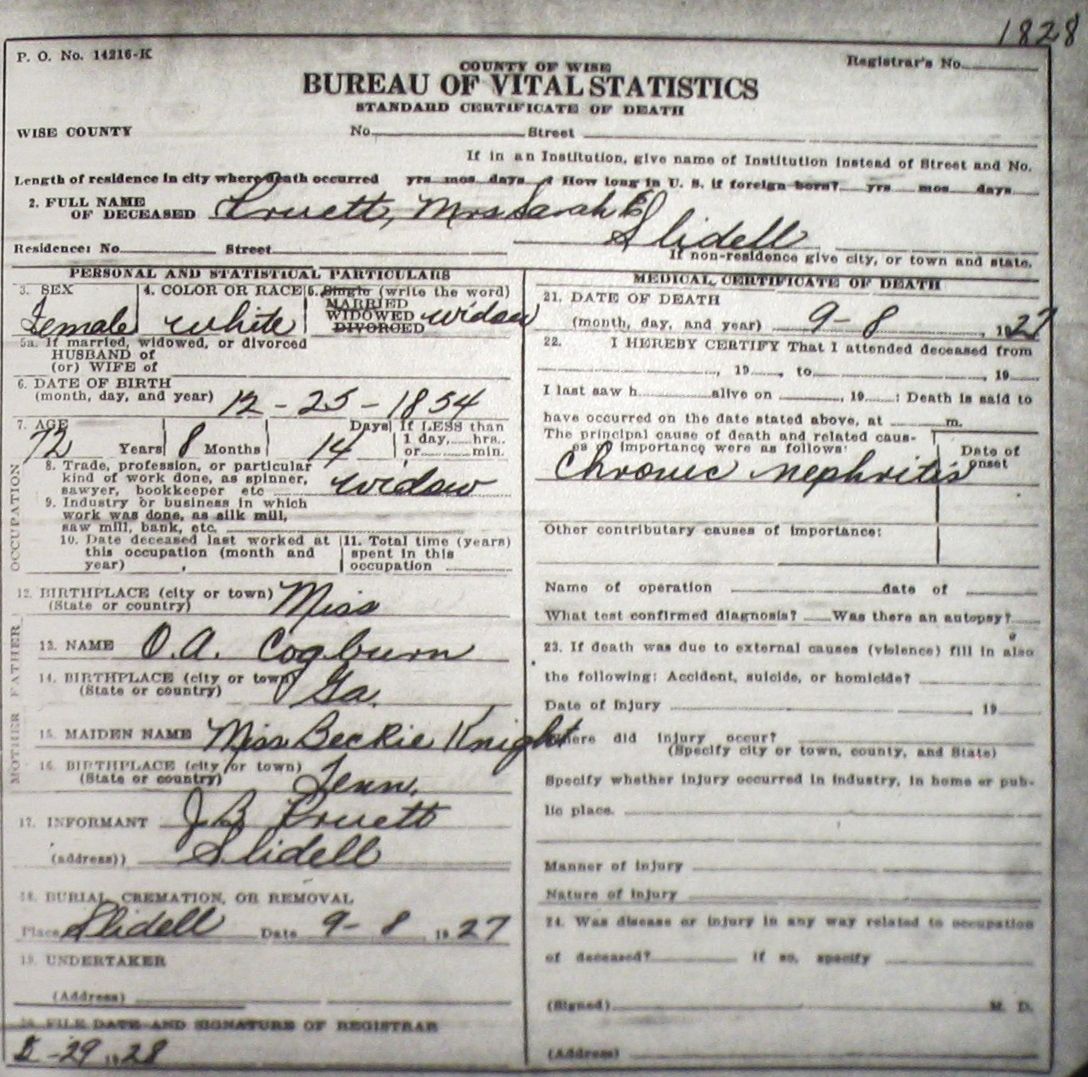 1828
P. O. No. 14216-K
COUNTY OF WISE
Registrar's No.
BUREAU OF VITAL STATISTICS
STANDARD CERTIFICATE OF DEATH
WISE COUNTY No. Street
If in an Institution, give name of Institution instead of Street and No.
Length of residence in city where death occurred yrs mos days How long in U. S. if foreign born? yrs mos days
2. FULL NAME
OF DECEASED Pruett, Mrs Sarah E
Slidell
Residence: No. Street
If non-residence give city, or town and state.
PERSONAL AND STATISTICAL PARTICULARS
3. SEX 4. COLOR OR RACE 5. Single (write the word)
MARRIED
WIDOWED
DIVORCED
Female white widow
5a. If married, widowed, or divorced
HUSBAND of
(or) WIFE of
6. DATE OF BIRTH
(month, day, and year) 12-25-1854
7. AGE Days If LESS than
1 day, hrs.
72 Years 8 Months 14 or min.
8. Trade, profession, or particular
kind of work done, as spinner,
sawyer, bookkeeper etc widow
9. Industry or business in which
work was done, as silk mill,
saw mill, bank, etc.
10. Date deceased last worked at
this occupation (month and
year)
11. Total time (years)
spent in this
occupation
OCCUPATION
12. BIRTHPLACE (city or town) Miss
(State or country)
FATHER
13. NAME O.A. Cogburn
14. BIRTHPLACE (city or town)
(State or country) Ga.
MOTHER
15. MAIDEN NAME Miss Beckie Knight
16. BIRTHPLACE (city or town)
(State or country) Tenn.
17. INFORMANT J B Pruett
(address)) Slidell
18. BURIAL, CREMATION, OR REMOVAL
Place Slidell Date 9-8 1927
19. UNDERTAKER
(Address)
20 FILE DATE AND SIGNATURE OF REGISTRAR
-29 1928
MEDICAL CERTIFICATE OF DEATH
21. DATE OF DEATH
(month, day, and year) 9-8, 1927
22. I HEREBY CERTIFY That I attended deceased from
, 19 , to , 19
I last saw h alive on , 19 : Death is said to
have occurred on the date stated above, at m.
The principal cause of death and related caus-
es of importance were as follows:
Date of
onset
Chronic nephritis
Other contributary causes of importance:
Name of operation date of
What test confirmed diagnosis? Was there an autopsy?
23. If death was due to external causes (violence) fill in also
the following: Accident, suicide, or homicide?
Date of injury 19
Where did injury occur?
(Specify city or town, county, and State)
Specify whether injury occurred in industry, in home or pub-
lic place.
Manner of injury
Nature of injury
24. Was disease or injury in any way related to occupation
of deceased? If so, specify
(Signed) M. D.
(Address)